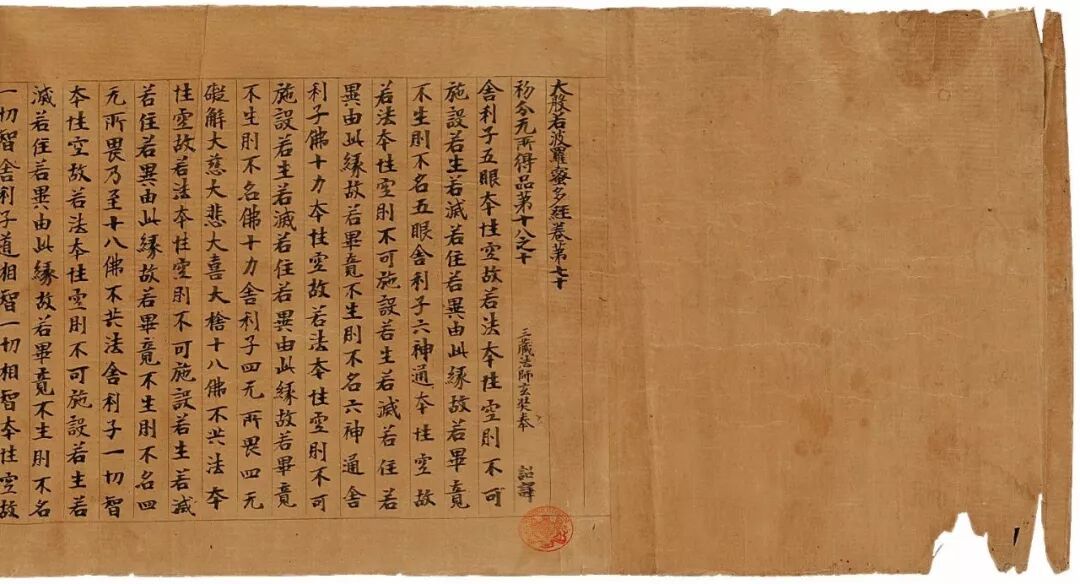 大般若波羅蜜多經卷第七十
初分无所得品第十八之十 三藏法師玄奘奉 詔譯
舍利子五眼本性空故若法本性空則不可
施設若生若滅若住若異由此緣故若畢竟
不生則不名五眼舍利子六神通本性空故
若法本性空則不可施設若生若滅若住若
異由此緣故若畢竟不生則不名六神通舍
利子佛十力本性空故若法本性空則不可
施設若生若滅若住若異由此緣故若畢竟
不生則不名佛十力舍利子四无所畏四无
礙解大慈大悲大喜大捨十八佛不共法本
性空故若法本性空則不可施設若生若滅
若住若異由此緣故若畢竟不生則不名四
无所畏乃至十八佛不共法舍利子一切智
本性空故若法本性空則不可施設若生若
滅若住若異由此緣故若畢竟不生則不名
一切智舍利子道相智一切相智本性空故